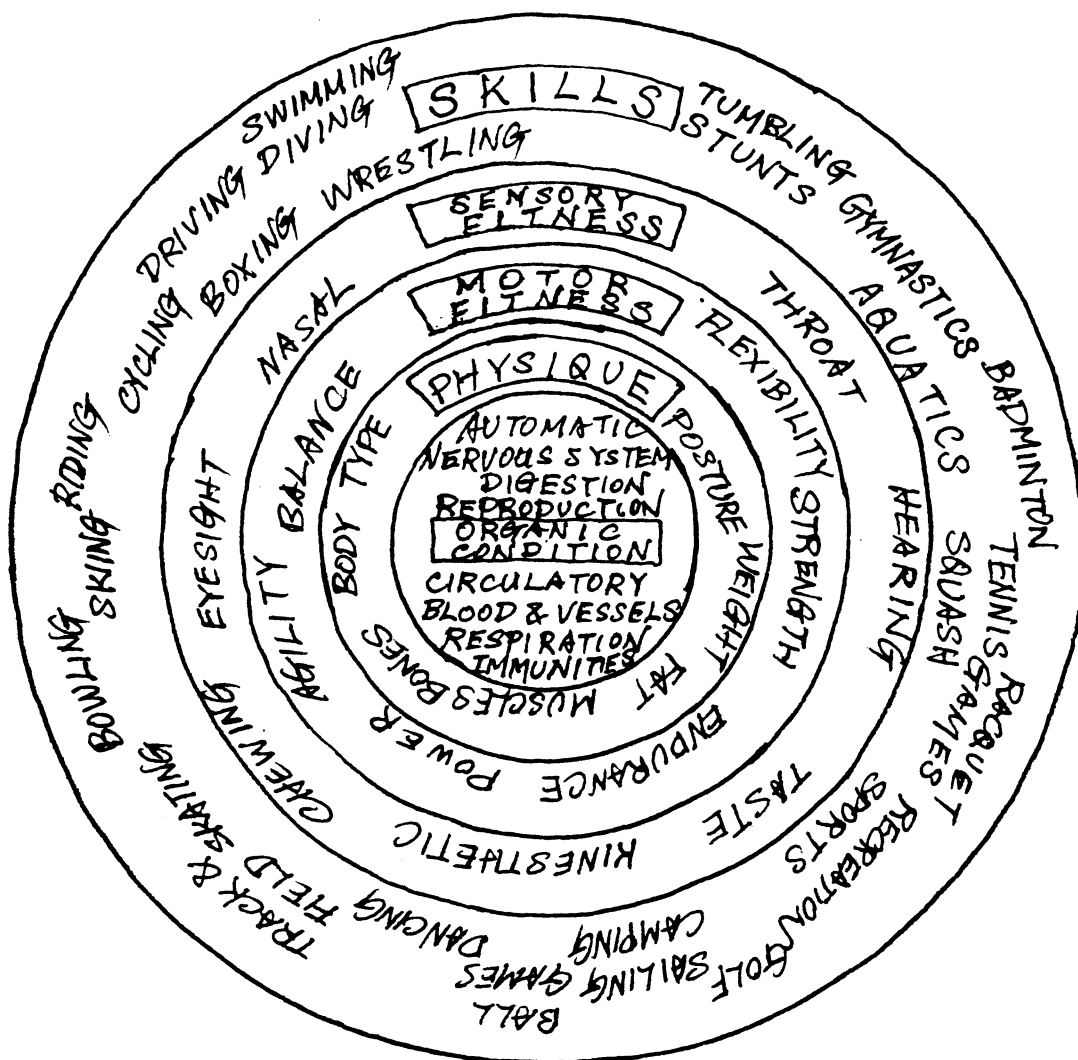 SKILLS
TUMBLING
STUNTS
GYMNASTICS
AQUATICS
BADMINTON
TENNIS
SQUASH
RACQUET
GAMES
RECREATION
SPORTS
GOLF
SAILING
CAMPING
BALL
GAMES
DANCING
TRACK &
FIELD
SKATING
BOWLING
SKIING
RIDING
CYCLING
DRIVING
DIVING
SWIMMING
BOXING
WRESTLING
SENSORY
FITNESS
THROAT
HEARING
TASTE
KINESTHETIC
CHEWING
EYESIGHT
NASAL
MOTOR
FITNESS
FLEXIBILITY
STRENGTH
ENDURANCE
POWER
AGILITY
BALANCE
PHYSIQUE
POSTURE
WEIGHT
FAT
MUSCLES
BONES
BODY TYPE
AUTOMATIC
NERVOUS SYSTEM
DIGESTION
REPRODUCTION
ORGANIC
CONDITION
CIRCULATORY
BLOOD & VESSELS
RESPIRATION
IMMUNITIES